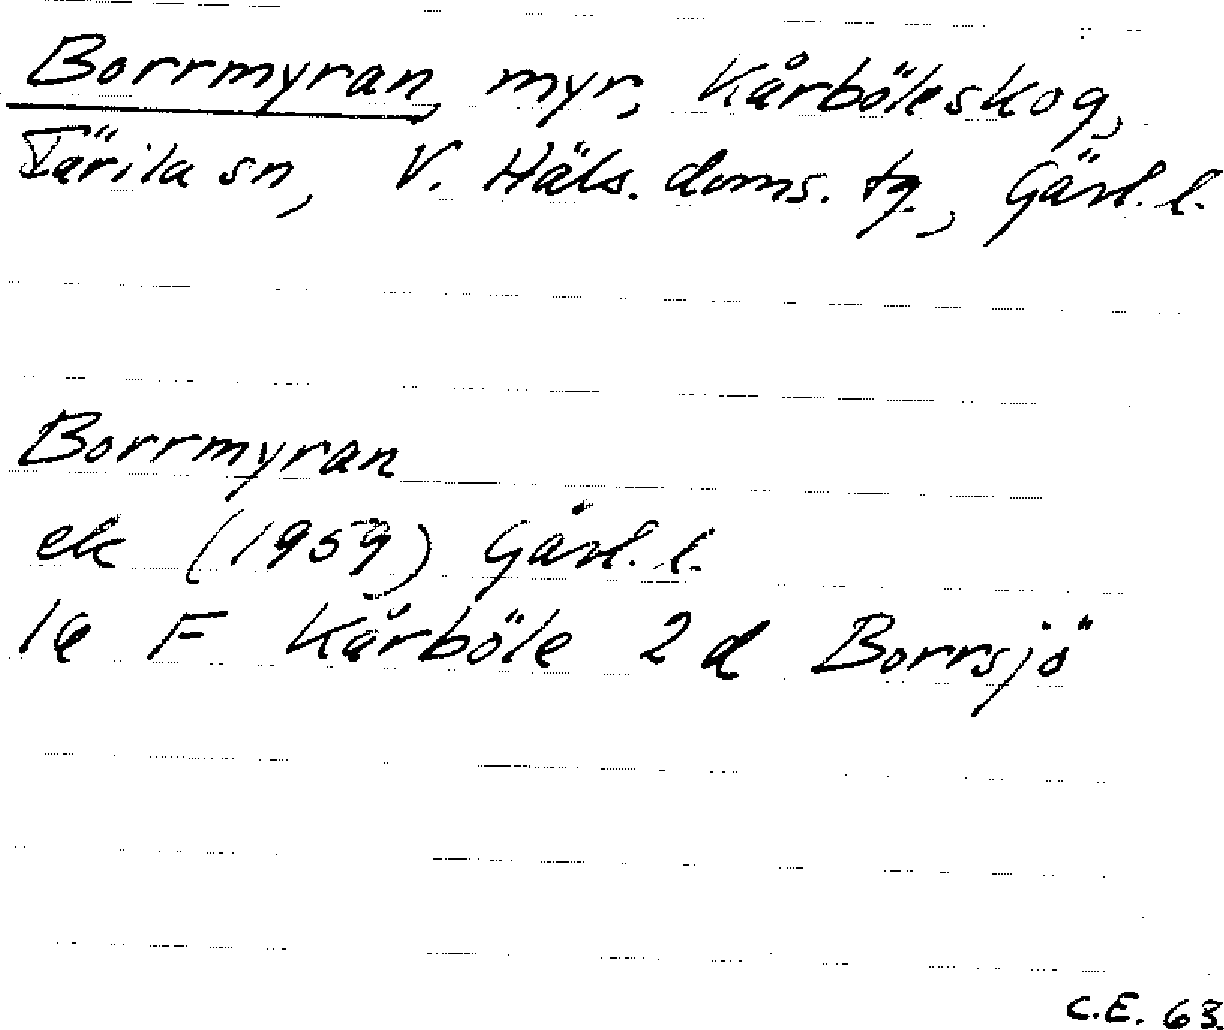 Borrmyran, myr, Kårböleskog,
Färila sn, V. Häls. doms. tg., Gävl. l.
Borrmyran
ek (1959) Gävl. l.
16 F Kårböle 2 d Borrsjö
C.E. 63.